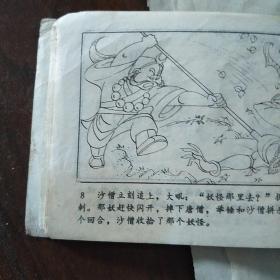 8 沙僧立刻追上，大吼："妖怪那里去？"
刺。那妖赶快闪开，摔下唐僧，举锤和沙僧拼
个回合，沙僧收拾了那个妖怪。